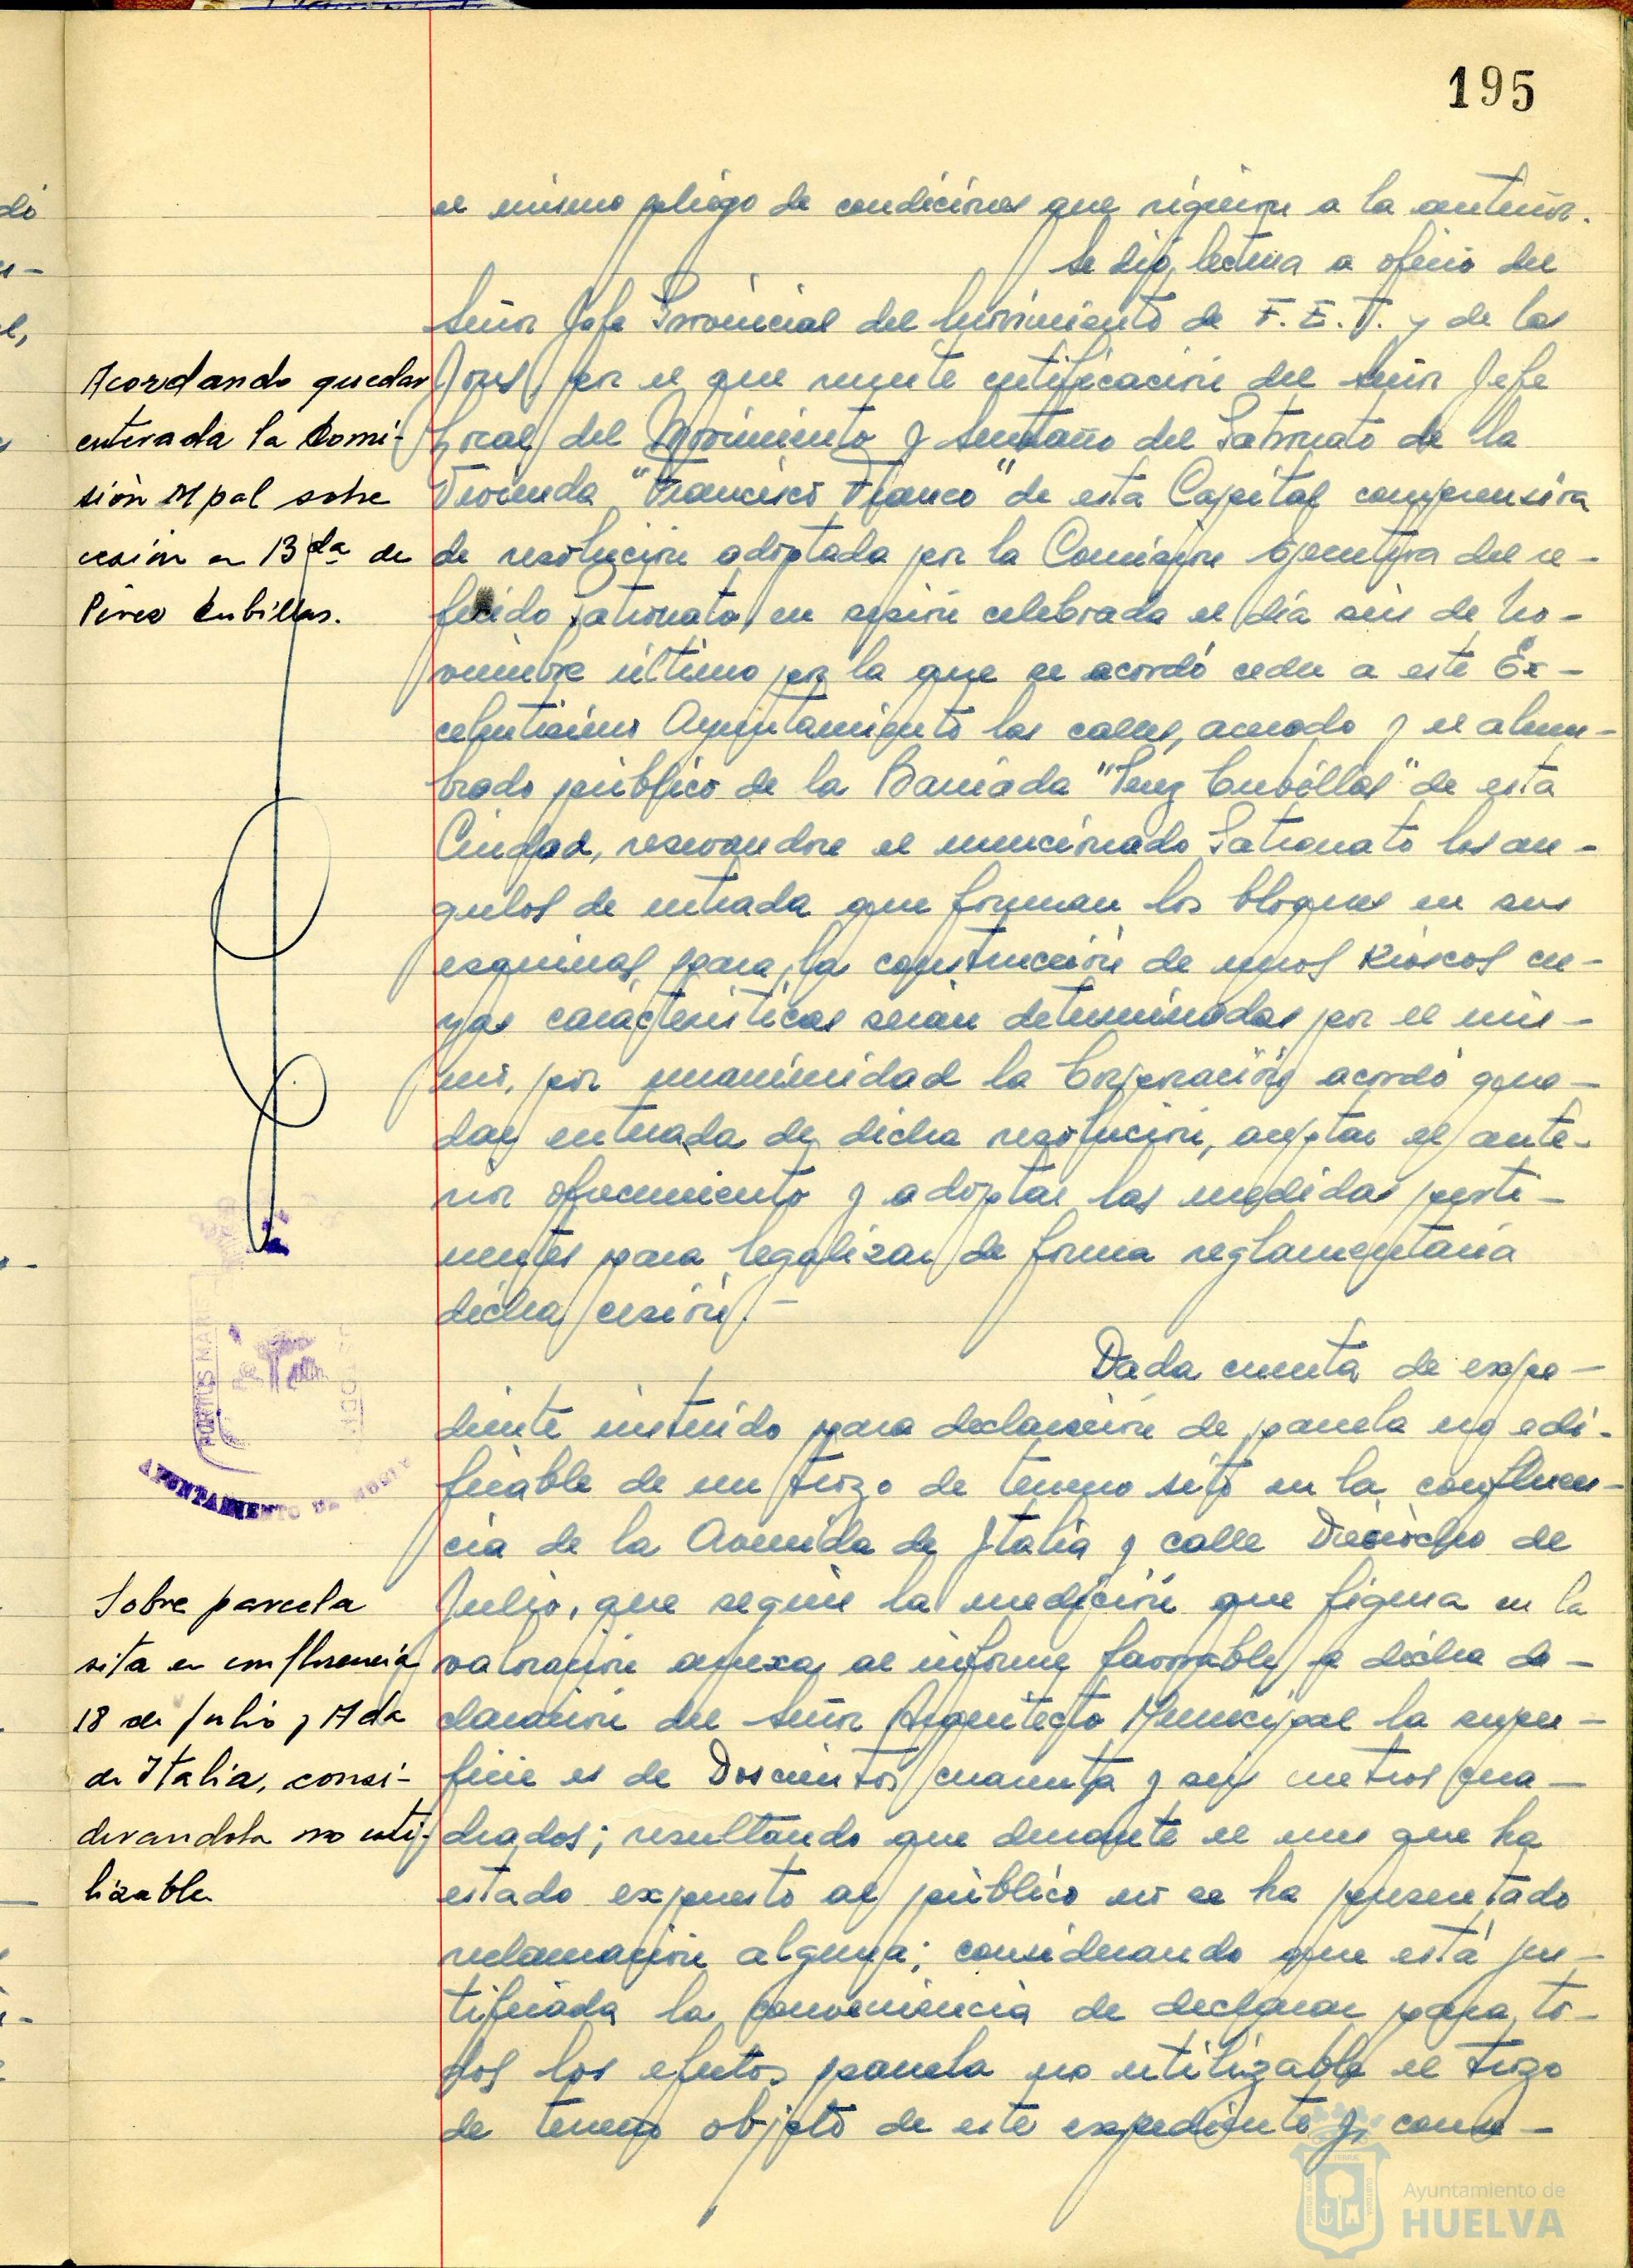 195
el mismo pliego de condiciones que rigieron a la anterior.
Se dió lectura a oficio del
Señor Jefe Provincial del Movimiento de F. E. T. y de las
Jons, por el que remite certificación del Señor Jefe
Local del Movimiento y Secretario del Patronato de la
Vivienda "Francisco Franco" de esta Capital comprensiva
de resolución adoptada por la Comisión Ejecutiva del re-
ferido patronato, en sesión celebrada el día seis de No-
viembre último por la que se acordó ceder a este Ex-
celentísimo Ayuntamiento las calles, acerado y el alum-
brado público de la Barriada "Perez Cubillas" de esta
Ciudad, reservandose el mencionado Patronato los an-
gulos de entrada que forman los bloques en sus
esquinas, para la construcción de unos Kioscos cu-
yas caracteristicas serán determinadas por el mis-
mo, por unanimidad la Corporación acordó que-
dar enterada de dicha resolución, aceptar el ante-
rior ofrecimiento y adoptar las medidas perti-
nentes para legalizar de forma reglamentaria
dicha cesión.-
Dada cuenta de expe-
diente instruido para declaración de parcela no edi-
ficable de un trozo de terreno sito en la confluen-
cia de la Avenida de Italia y calle Dieciocho de
Julio, que según la medición que figura en la
valoración anexa al informe favorable a dicha de-
claración del Señor Arquitecto Municipal la super-
ficie es de Doscientos cuarenta y seis metros cua-
drados; resultando que durante el mes que ha
estado expuesto al público no se ha presentado
reclamación alguna; considerando que está jus-
tificada la conveniencia de declarar para to-
dos los efectos parcela no utilizable el trozo
de terreno objeto de este expediente y, como-
Acordando quedar
enterada la Comi-
sión Mpal sobre
cesión en Bda de
Pérez Cubillas.
PORTUS MARIS
AYUNTAMIENTO DE HUELVA
Sobre parcela
sita en confluencia
18 de Julio y Avda
de Italia, consi-
derandola no uti-
lizable
Ayuntamiento de
HUELVA